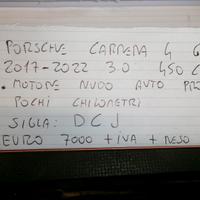 PORSCHE CARRERA 4 G
2017-2022 3.0 450 C
• MOTORE NUDO AUTO PR
POCHI CHILOMETRI
SIGLA: DCJ
EURO 7000 + IVA + RESO